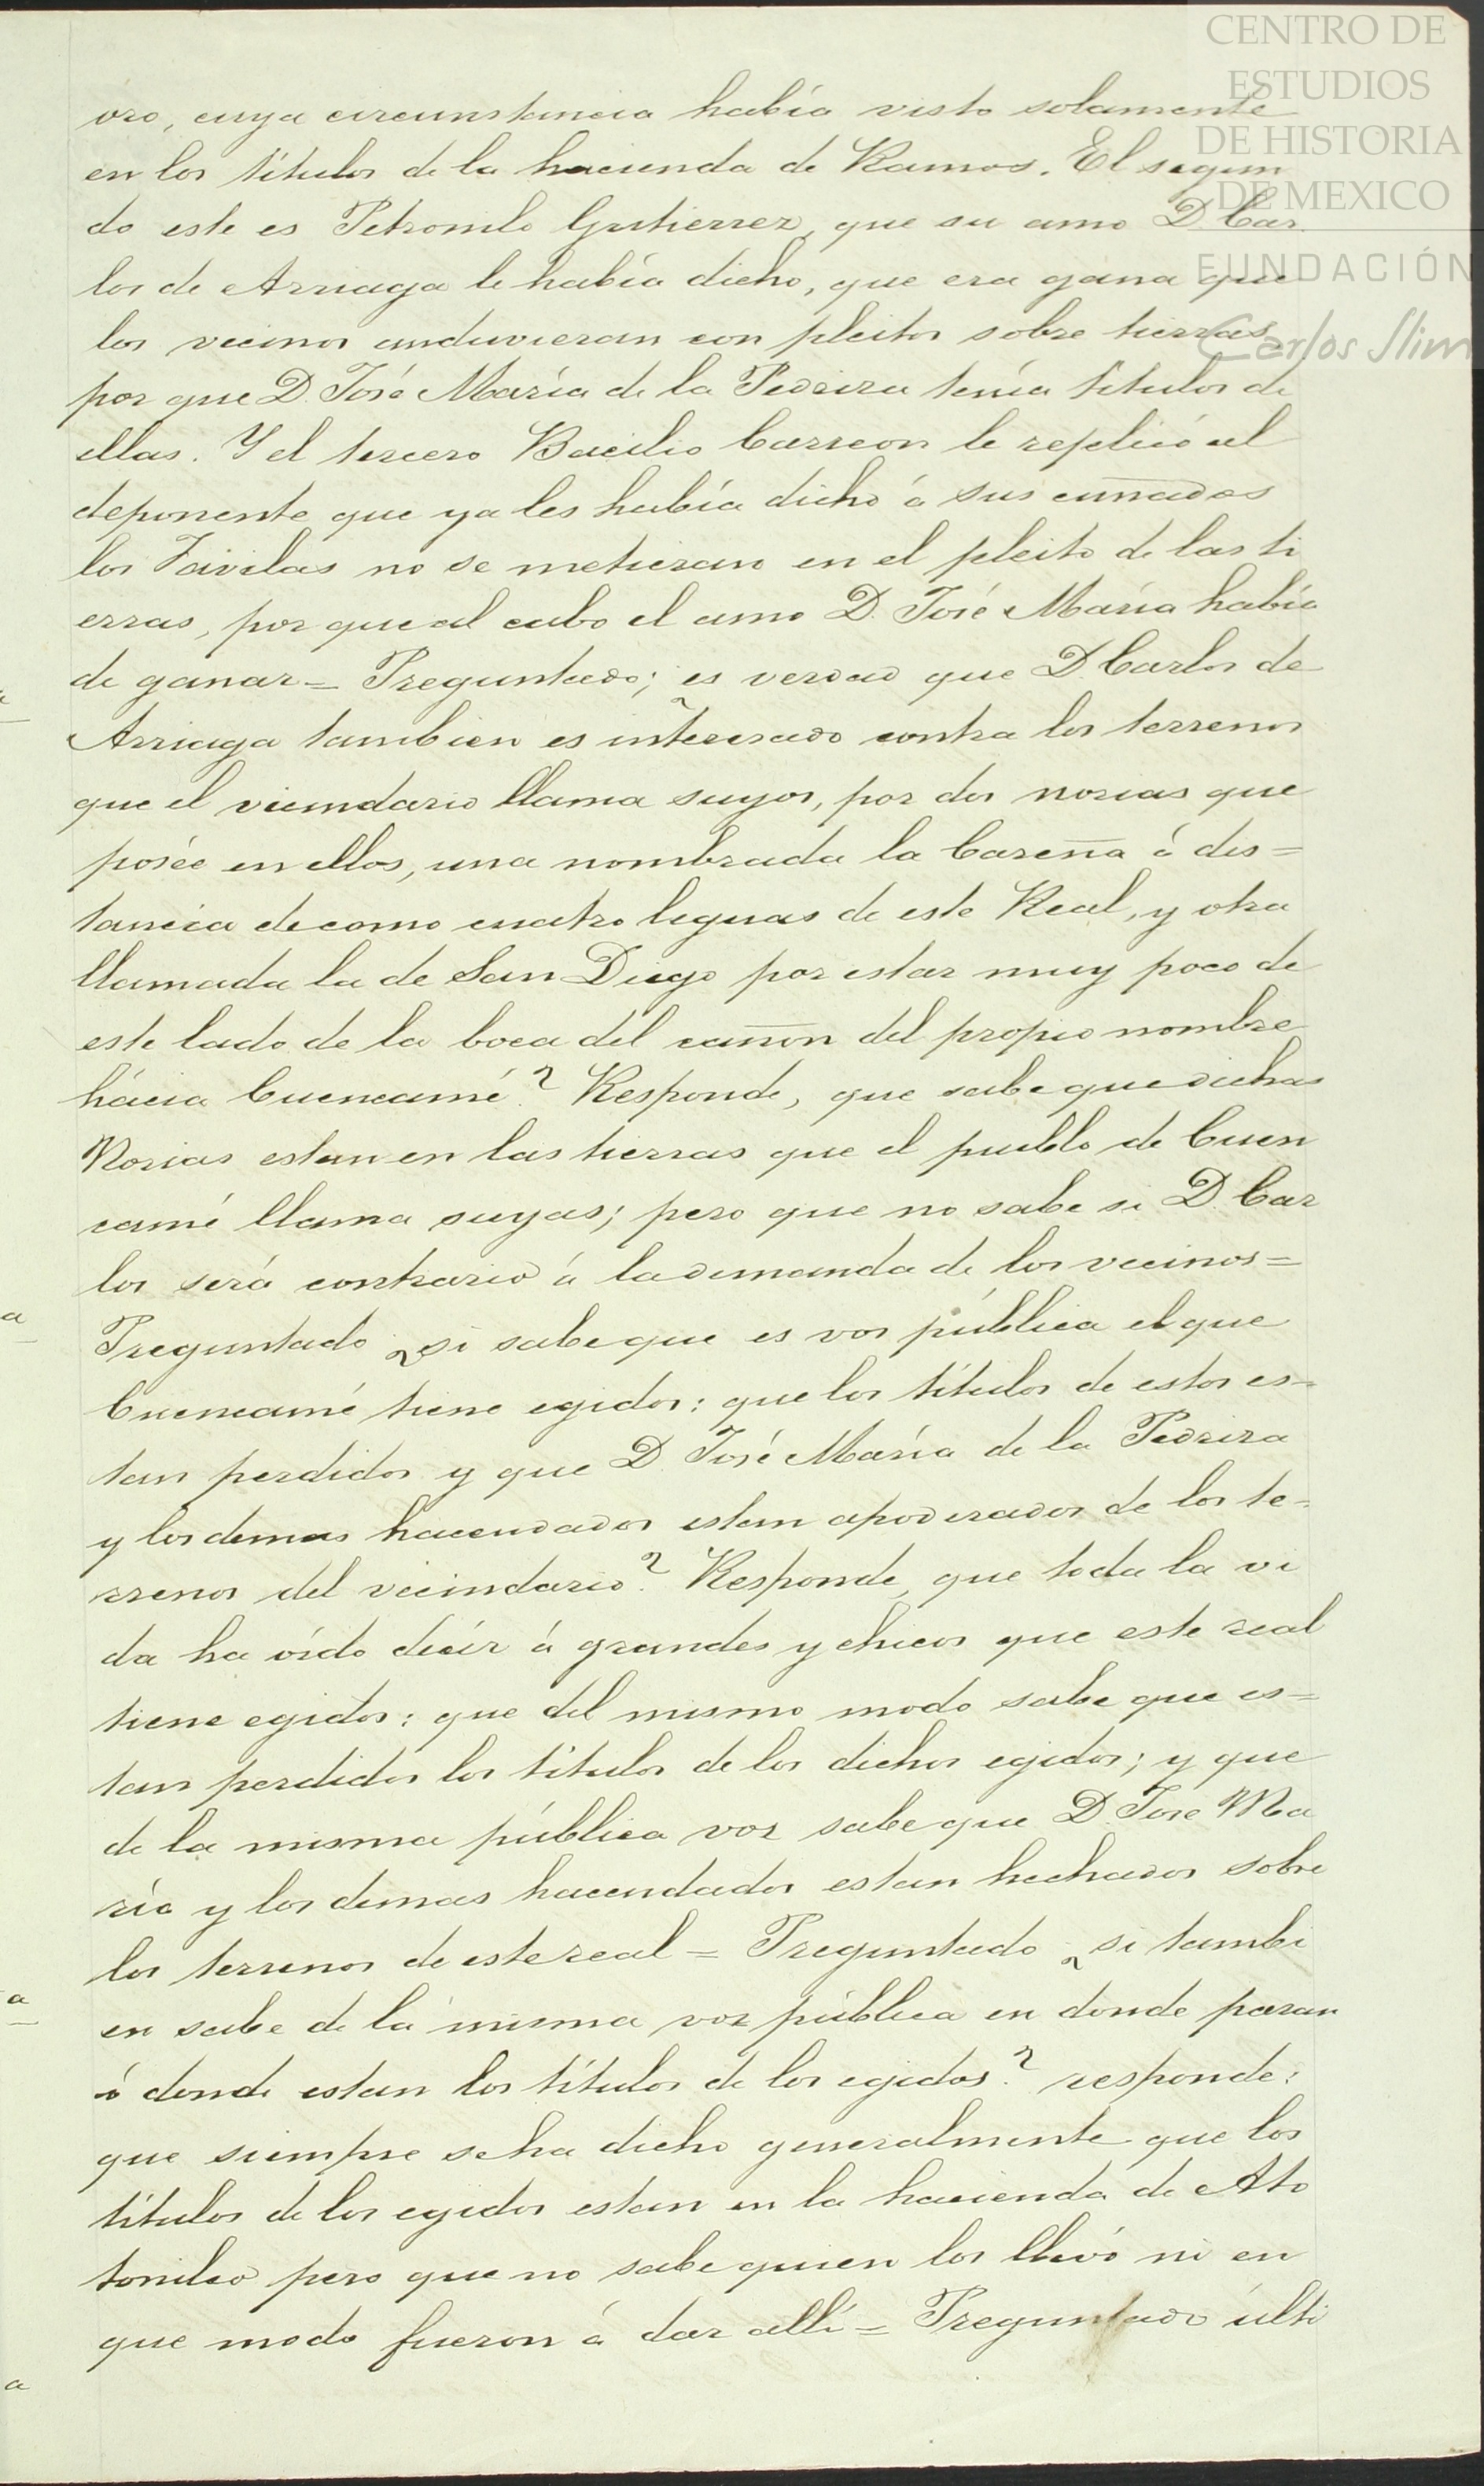 CENTRO DE
ESTUDIOS
DE HISTORIA
DE MEXICO
FUNDACIÓN
Carlos Slim
oro, cuya circunstancia había visto solamente
en los títulos de la hacienda de Ramos. El segun
do este es Petronilo Gutierrez, que su amo D. Car
los de Arriaga le había dicho, que era gana que
los vecinos anduvieran con pleitos sobre tierras,
por que D. José María de la Pedriza tenía títulos de
ellas. Y el tercero Bacilio Carreon le replicó al
deponente que ya les había dicho á sus cuñados
los Favilas no se metieran en el pleito de las ti
erras, por que al cabo el amo D. José María había
de ganar = Preguntado; es verdad que D. Carlos de
Arriaga tambien es interesado contra los terrenos
que el vicindario llama suyos, por dos norias que
posée en ellos, una nombrada la Careña á dis=
tancia de como cuatro leguas de este Real, y otra
llamada la de San Diego por estar muy poco de
este lado de la boca del cañon del propio nombre
hácia Cuencamé? Responde, que sabe que dichas
Norias estan en las tierras que el pueblo de Cuen
camé llama suyas; pero que no sabe si D. Car
los será contrario á la demanda de los vecinos=
Preguntado ¿si sabe que es vos pública el que
Cuencamé tiene egidos: que los títulos de estos es=
tan perdidos y que D. José María de la Pedriza
y los demas hacendados estan apoderados de los te=
rrenos del vecindario? Responde, que toda la vi
da ha oído decír á grandes y chicos que este real
tiene egidos: que del mismo modo sabe que es=
tan perdidos los títulos de los dichos egidos; y que
de la misma pública voz sabe que D. Jose Ma
ría y los demas hacendados estan hechados sobre
los terrenos de este real = Preguntado ¿si tambi
en sabe de la misma voz pública en donde paran
ó donde estan los títulos de los egidos? responde:
que siempre se ha dicho generalmente que los
títulos de los egidos estan en la hacienda de Ato
tonilco pero que no sabe quien los llevó ni en
que modo fueron á dar allí = Preguntado últi
a
a
a